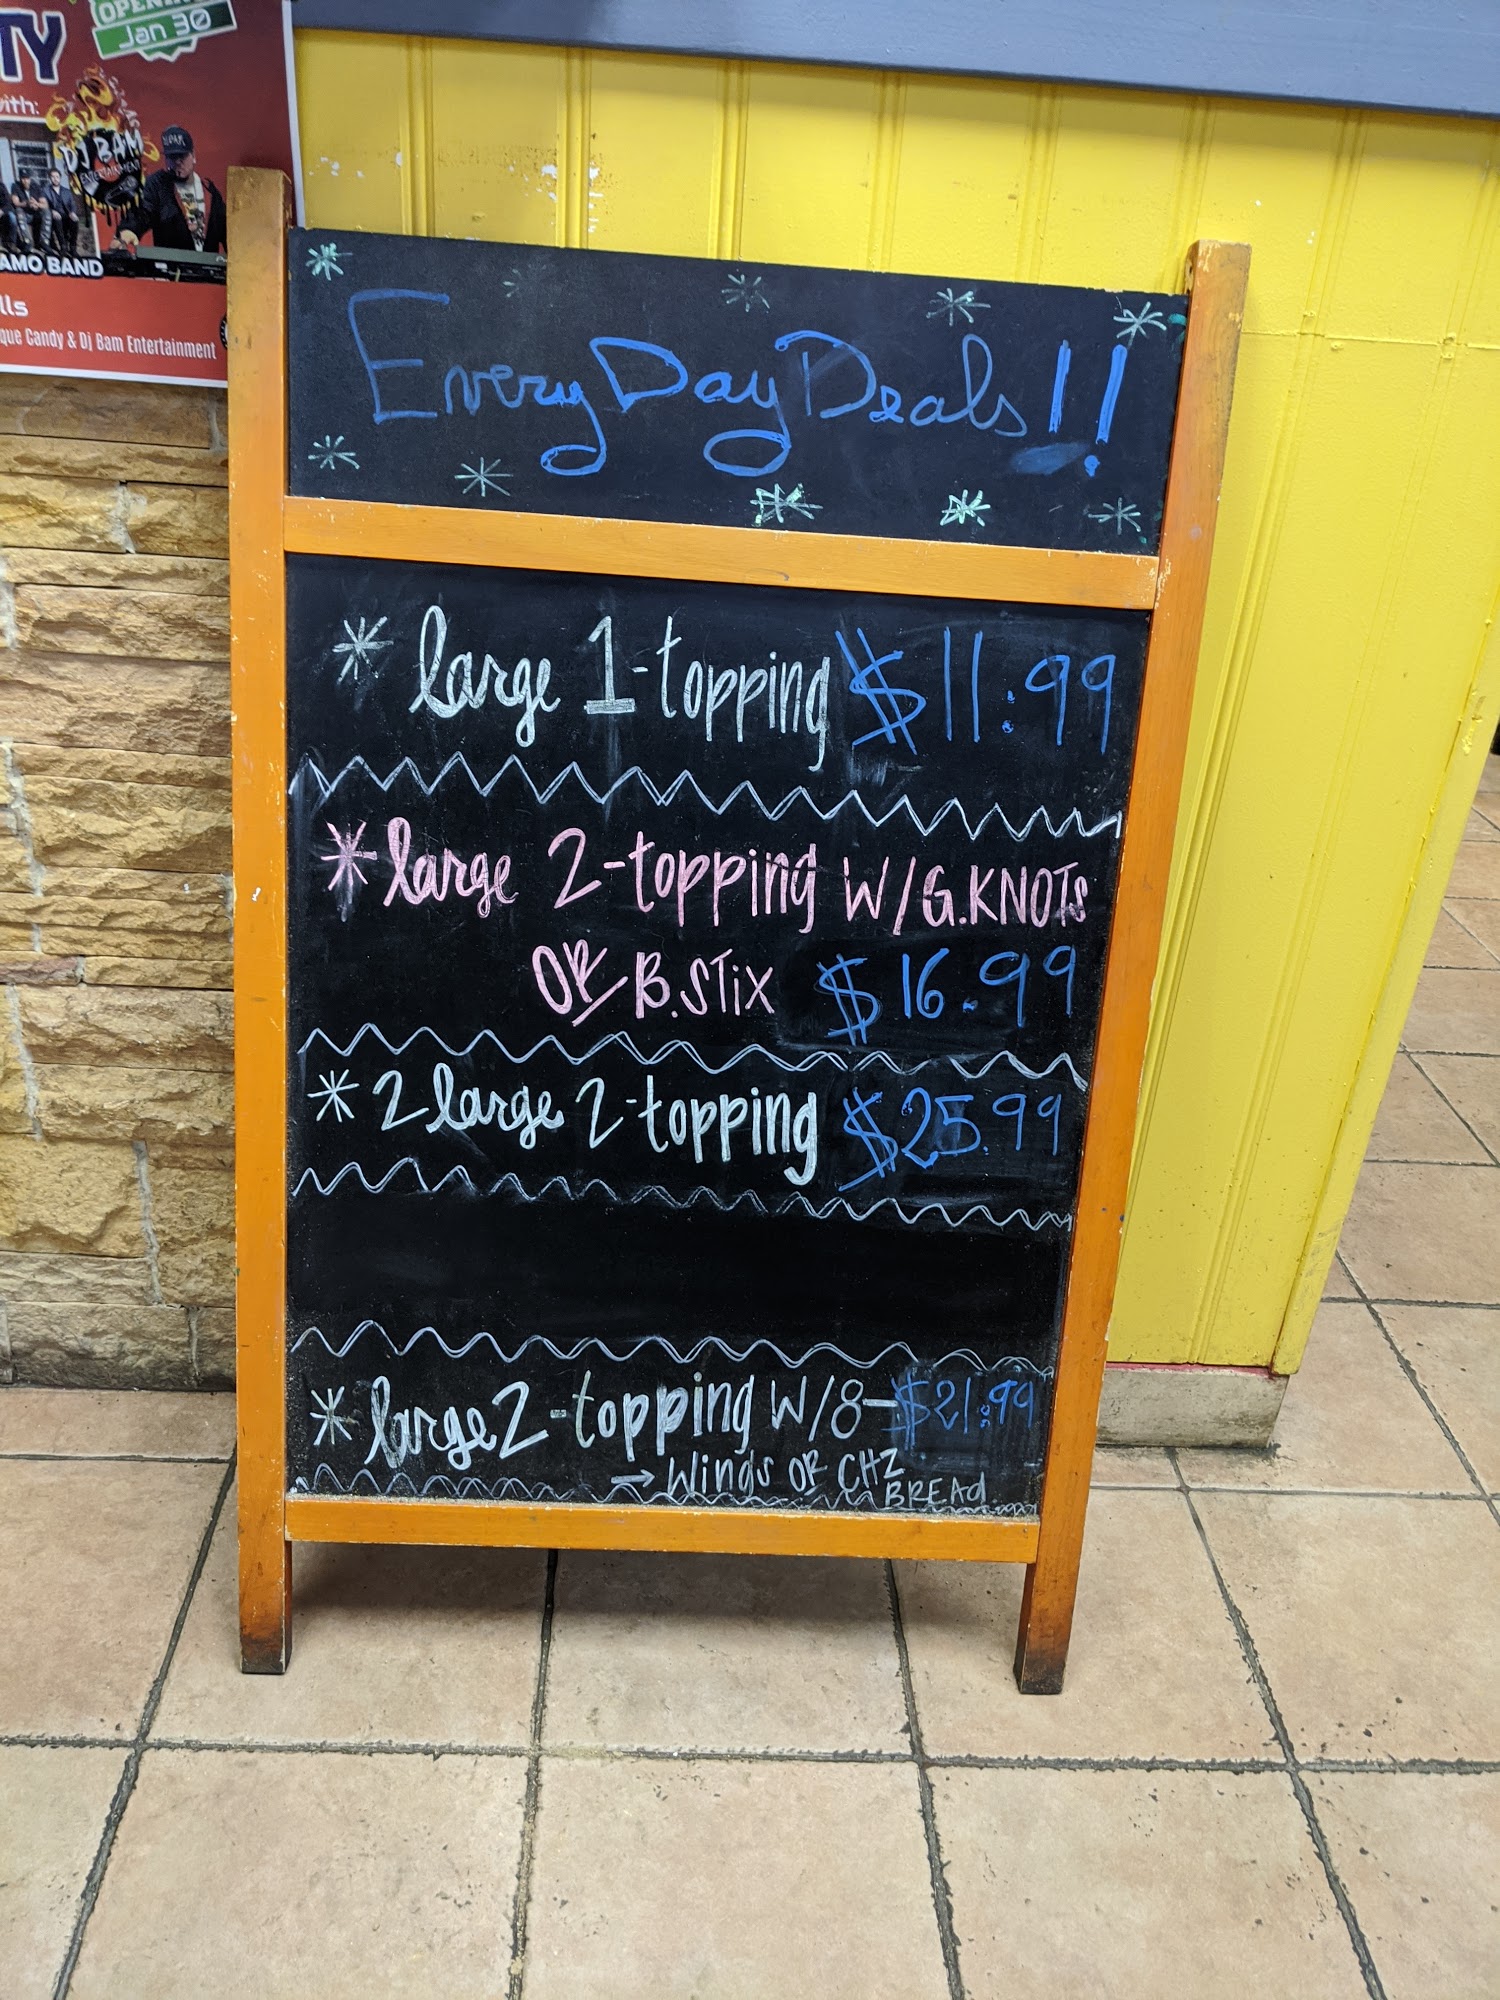 OPENING
Jan 30
TY
with:
DJ BAM
ENTERTAINMENT
AMO BAND
lls
que Candy & Dj Bam Entertainment
Every Day Deals!!
* large 1-topping $11.99
* large 2-topping W/G.KNOTS
OR B.STiX $16.99
* 2 large 2-topping $25.99
* large 2-topping W/8- $21.99
→ Wings OR CHZ
BREAd